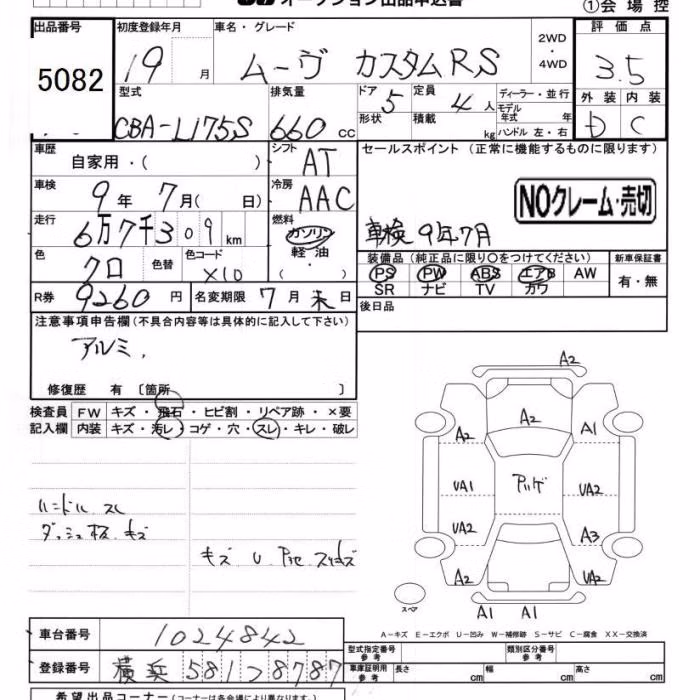 オークション出品申込書
①会場控
出品番号 初度登録年月 車名・グレード 評価点
5082 19 月 ムーヴ カスタムRS 2WD・4WD 3.5
型式 排気量 ドア 5 定員 4 人 ディーラー・並行 外装 内装
CBA-L175S 660 cc 形状 積載 kg モデル年式 年 ハンドル 左・右 D C
車歴 自家用・( ) シフト AT セールスポイント (正常に機能するものに限ります)
車検 9年 7月( 日) 冷房 AAC NOクレーム・売切
走行 6万7千309km 燃料 ガソリン 軽油 ( ・ ) 車検 9年7月
色 クロ 色替 色コード X10 装備品 (純正品に限り○をつけてください) 新車保証書
PS PW ABS エアB AW 有・無
SR ナビ TV カワ
R券 9260 円 名変期限 7月末日 後日品
注意事項申告欄 (不具合内容等は具体的に記入して下さい)
アルミ.
修復歴 有 〔箇所 〕
検査員 FW キズ・飛石・ヒビ割・リペア跡・×要
記入欄 内装 キズ・汚レ・コゲ・穴・スレ・キレ・破レ
ハンドル スレ
ダッシュ板 キズ
キズ U
A2
A2 A2 A1
UA1 UA2
UA2 A3
A2 UA2
スペア
A1 A1
A-キズ E-エクボ U-凹み W-補修跡 S-サビ C-腐食 XX-交換済
車台番号 1024842 型式指定番号 参考 類別区分番号 参考
登録番号 横浜 581 ラ 8787 車庫証明用 参考 長さ cm 幅 cm 高さ cm
希望出品コーナー (コーナーは各会場により異なります)